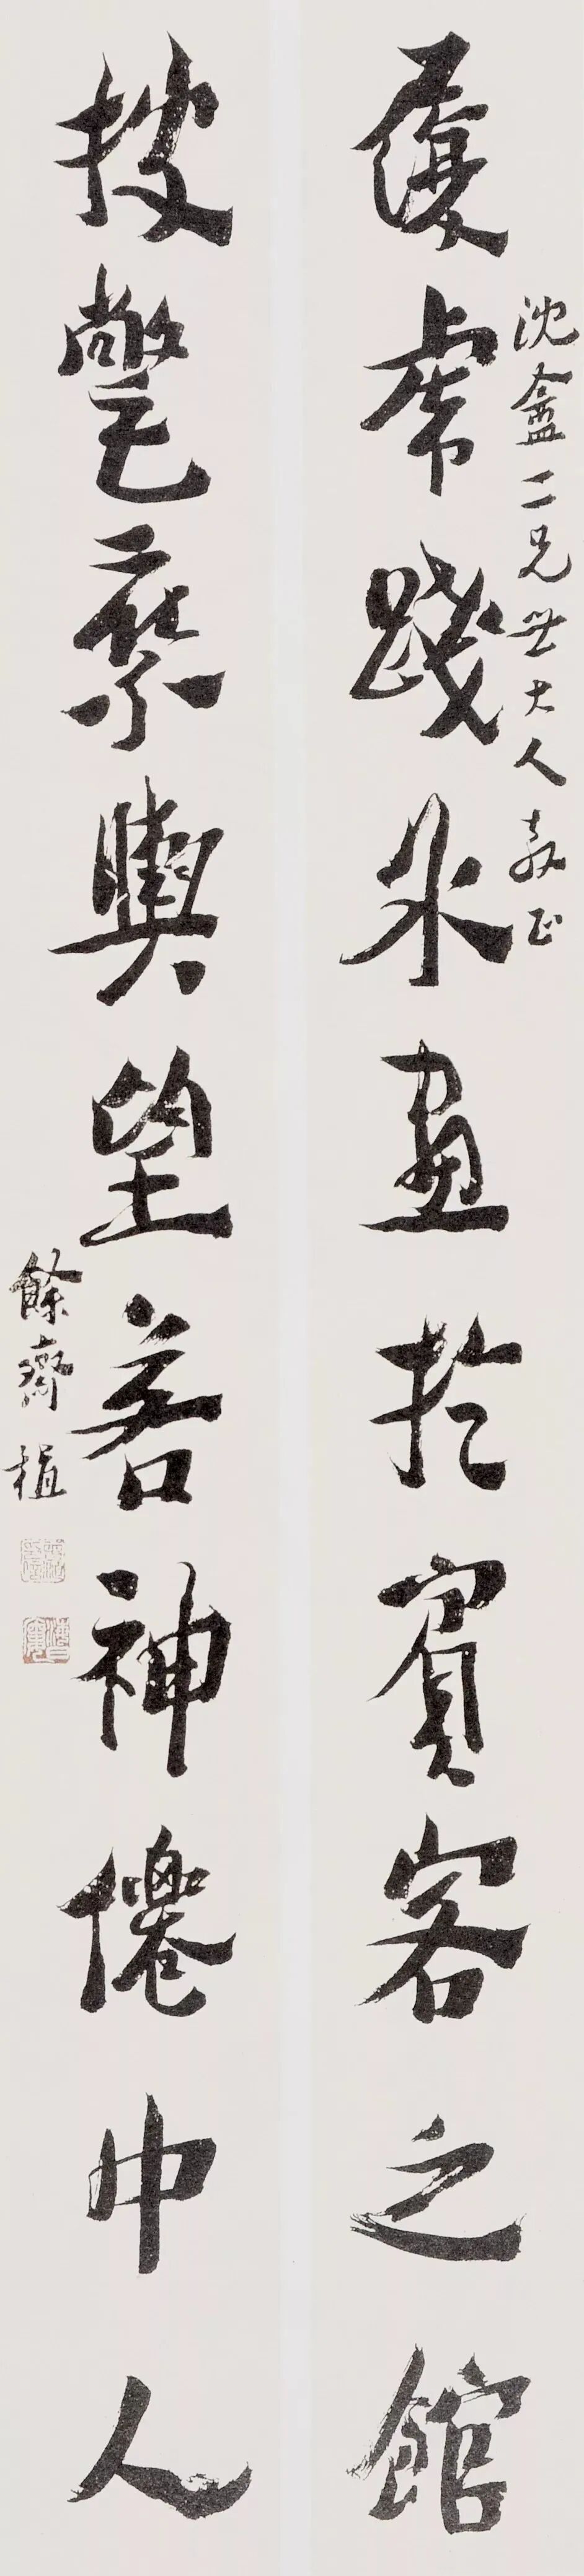 沈盦二兄世大人教正
履虎踐冰畫於賓客之館
披氅乘輿望若神僊中人
餘齋植